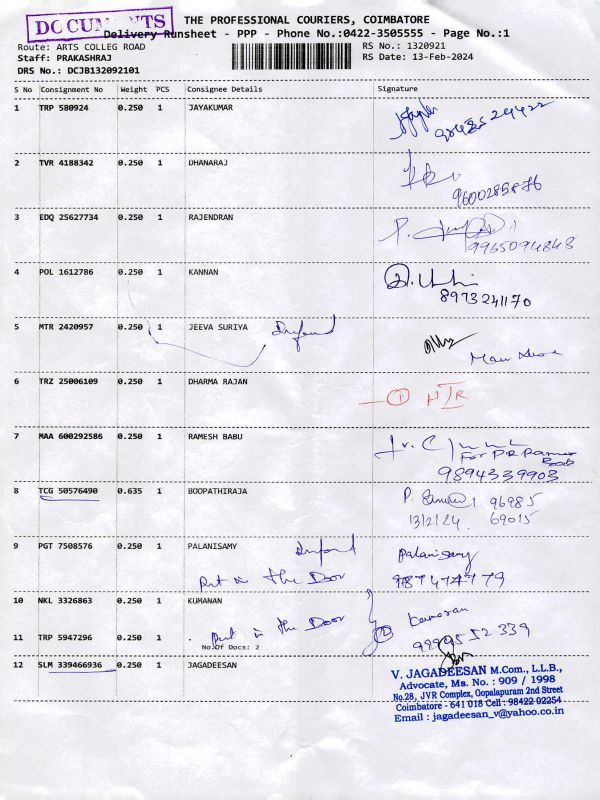 DOCUMENTS
THE PROFESSIONAL COURIERS, COIMBATORE
Delivery Runsheet - PPP - Phone No.:0422-3505555 - Page No.:1
Route: ARTS COLLEG ROAD
RS No.: 1320921
Staff: PRAKASHRAJ
RS Date: 13-Feb-2024
DRS No.: DCJB132092101
S No Consignment No Weight PCS Consignee Details Signature
1 TRP 580924 0.250 1 JAYAKUMAR
2 TVR 4188342 0.250 1 DHANARAJ
3 EDQ 25627734 0.250 1 RAJENDRAN
9965094848
4 POL 1612786 0.250 1 KANNAN
8973241170
5 MTR 2420957 0.250 1 JEEVA SURIYA
6 TRZ 25006109 0.250 1 DHARMA RAJAN
7 MAA 600292586 0.250 1 RAMESH BABU
For
9894339903
8 TCG 50576490 0.635 1 BOOPATHIRAJA
P. 96985
13/2/24 69015
9 PGT 7508576 0.250 1 PALANISAMY palanisamy
Put in the Door
10 NKL 3326863 0.250 1 KUMANAN
Put in the Door
11 TRP 5947296 0.250 1 .
No.Of Docs: 2
12 SLM 339466936 0.250 1 JAGADEESAN
V. JAGADEESAN M.Com., L.L.B.,
Advocate, Ms. No. : 909 / 1998
No.28, JVR Complex, Gopalapuram 2nd Street
Coimbatore - 641 018 Cell : 98422 02254
Email : jagadeesan_v@yahoo.co.in